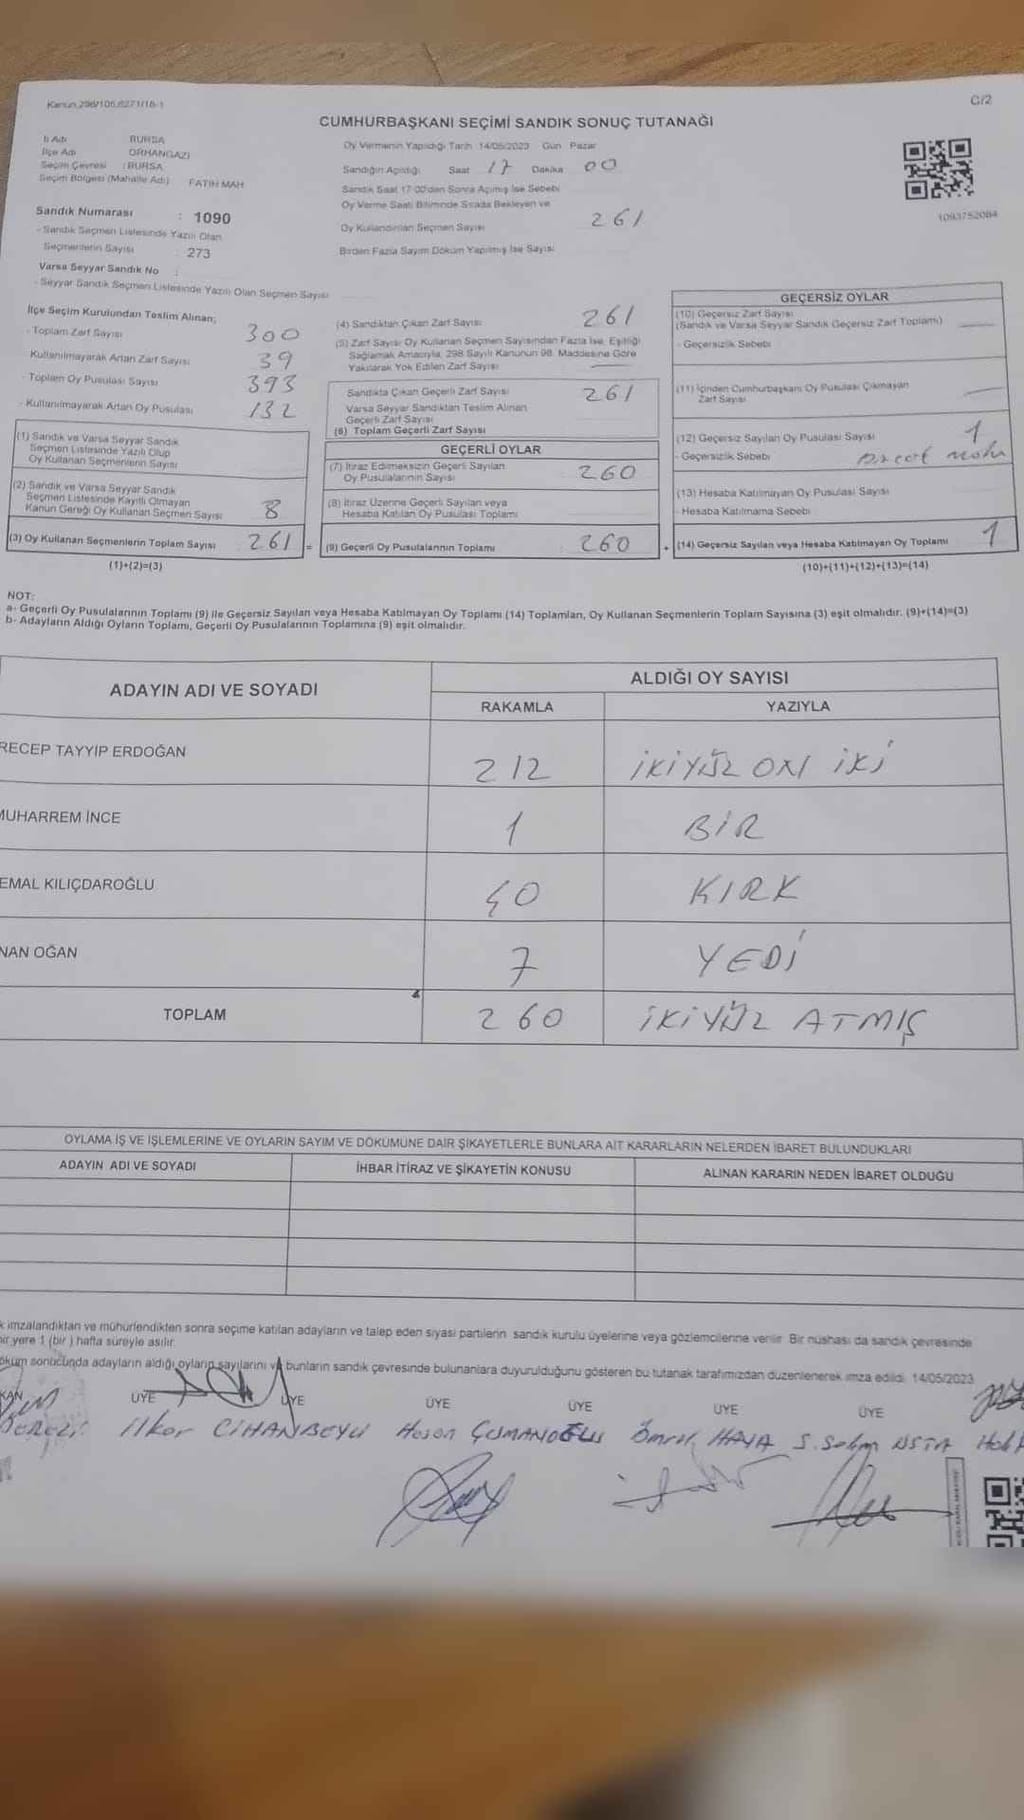 Kanun,298/105,6271/16-1
C/2
CUMHURBAŞKANI SEÇİMİ SANDIK SONUÇ TUTANAĞI
İl Adı BURSA
İlçe Adı ORHANGAZİ
Seçim Çevresi : BURSA
Seçim Bölgesi (Mahalle Adı) FATİH MAH
Oy Vermenin Yapıldığı Tarih 14/05/2023 Gün Pazar
Sandığın Açıldığı Saat 17 Dakika 00
Sandık Saat 17 00'dan Sonra Açılmış İse Sebebi
Oy Verme Saati Bitiminde Sırada Bekleyen ve
Oy Kullandırılan Seçmen Sayısı 261
Birden Fazla Sayım Döküm Yapılmış İse Sayısı
1093752084
Sandık Numarası : 1090
- Sandık Seçmen Listesinde Yazılı Olan
Seçmenlerin Sayısı 273
Varsa Seyyar Sandık No :
- Seyyar Sandık Seçmen Listesinde Yazılı Olan Seçmen Sayısı
İlçe Seçim Kurulundan Teslim Alınan;
- Toplam Zarf Sayısı 300
Kullanılmayarak Artan Zarf Sayısı 39
- Toplam Oy Pusulası Sayısı 393
- Kullanılmayarak Artan Oy Pusulası 132
(1) Sandık ve Varsa Seyyar Sandık
Seçmen Listesinde Yazılı Olup
Oy Kullanan Seçmenlerin Sayısı
(2) Sandık ve Varsa Seyyar Sandık
Seçmen Listesinde Kayıtlı Olmayan
Kanun Gereği Oy Kullanan Seçmen Sayısı 8
(3) Oy Kullanan Seçmenlerin Toplam Sayısı 261 =
(1)+(2)=(3)
(4) Sandıktan Çıkan Zarf Sayısı 261
(5) Zarf Sayısı Oy Kullanan Seçmen Sayısından Fazla İse, Eşitliği
Sağlamak Amacıyla, 298 Sayılı Kanunun 98. Maddesine Göre
Yakılarak Yok Edilen Zarf Sayısı
Sandıkta Çıkan Geçerli Zarf Sayısı 261
Varsa Seyyar Sandıktan Teslim Alınan
Geçerli Zarf Sayısı
(6) Toplam Geçerli Zarf Sayısı
GEÇERLİ OYLAR
(7) İtiraz Edilmeksizin Geçerli Sayılan
Oy Pusulasının Sayısı 260
(8) İtiraz Üzerine Geçerli Sayılan veya
Hesaba Katılan Oy Pusulası Toplamı
(9) Geçerli Oy Pusulalarının Toplamı 260 +
GEÇERSİZ OYLAR
(10) Geçersiz Zarf Sayısı
(Sandık ve Varsa Seyyar Sandık Geçersiz Zarf Toplamı)
- Geçersizlik Sebebi
(11) İçinden Cumhurbaşkanı Oy Pusulası Çıkmayan
Zarf Sayısı
(12) Geçersiz Sayılan Oy Pusulası Sayısı 1
- Geçersizlik Sebebi
(13) Hesaba Katılmayan Oy Pusulası Sayısı
- Hesaba Katılmama Sebebi
(14) Geçersiz Sayılan veya Hesaba Katılmayan Oy Toplamı 1
(10)+(11)+(12)+(13)=(14)
NOT:
a- Geçerli Oy Pusulalarının Toplamı (9) ile Geçersiz Sayılan veya Hesaba Katılmayan Oy Toplamı (14) Toplamları, Oy Kullanan Seçmenlerin Toplam Sayısına (3) eşit olmalıdır. (9)+(14)=(3)
b- Adayların Aldığı Oyların Toplamı, Geçerli Oy Pusulalarının Toplamına (9) eşit olmalıdır.
ADAYIN ADI VE SOYADI ALDIĞI OY SAYISI
RAKAMLA YAZIYLA
RECEP TAYYIP ERDOĞAN 212 İKİYÜZ ON İKİ
MUHARREM İNCE 1 BİR
EMAL KILIÇDAROĞLU 40 KIRK
NAN OĞAN 7 YEDİ
TOPLAM 260 İKİYÜZ ATMIŞ
OYLAMA İŞ VE İŞLEMLERİNE VE OYLARIN SAYIM VE DÖKÜMÜNE DAİR ŞİKAYETLERLE BUNLARA AİT KARARLARIN NELERDEN İBARET BULUNDUKLARI
ADAYIN ADI VE SOYADI İHBAR İTİRAZ VE ŞİKAYETİN KONUSU ALINAN KARARIN NEDEN İBARET OLDUĞU
k imzalandıktan ve mühürlendikten sonra seçime katılan adayların ve talep eden siyasi partilerin sandık kurulu üyelerine veya gözlemcilerine verilir Bir nüshası da sandık çevresinde
bir yere 1 (bir ) hafta süreyle asılır
öküm sonucunda adayların aldığı oyların sayılarını ve bunların sandık çevresinde bulunanlara duyurulduğunu gösteren bu tutanak tarafımızdan düzenlenerek imza edildi 14/05/2023
KAN ÜYE ÜYE ÜYE ÜYE ÜYE ÜYE
İlker CİHANBEYLİ Hasan S. Selim USTA